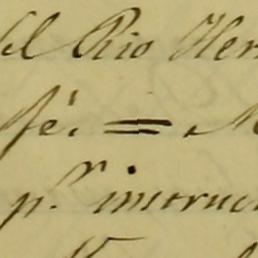 del Rio Her
fé. = M
p.r instruc